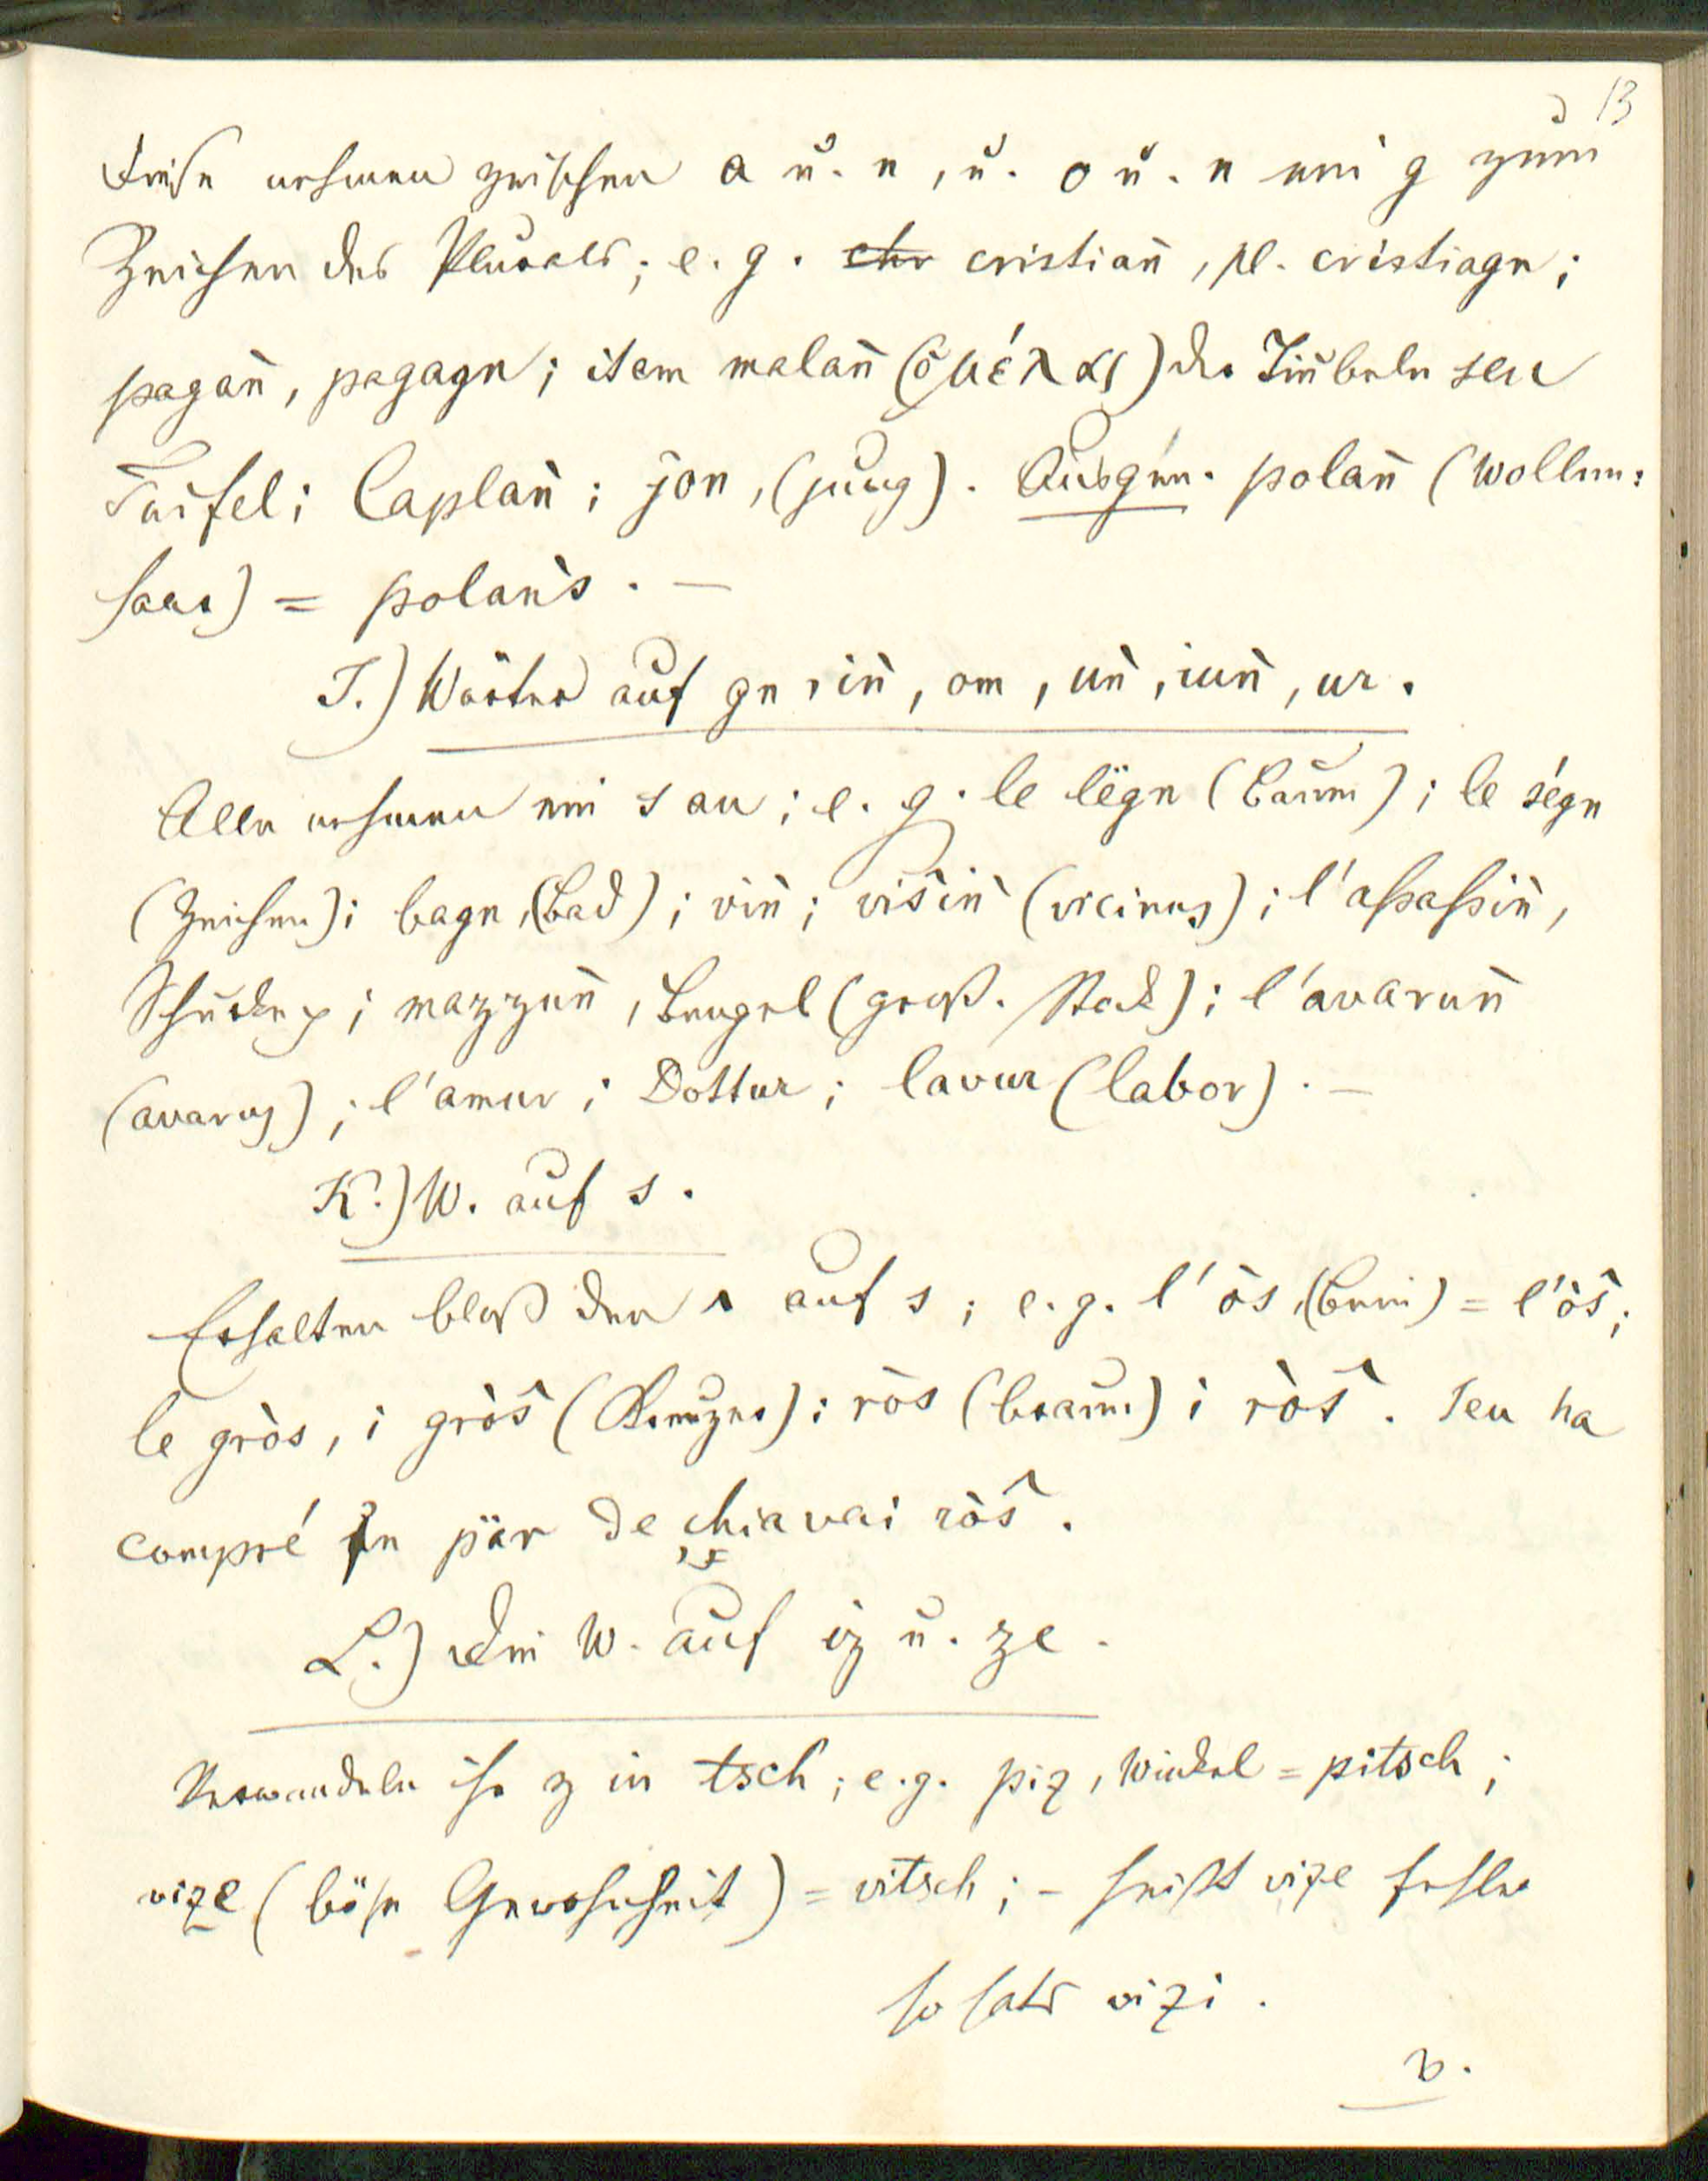 13
Diese nehmen zwischen a u. n, u. o u. n ein g zum
Zeichen des Plurals; e. g. chr cristian̄, pl. cristiagn;
pagan̄, pagagn; item malan̄ (ὁ μέλας) der Teufel;
Caplan̄; jon, (jung). Ausgen. polan̄ (Wollen:
haar) = polan̄s. —
I.) Wörter auf gn, in̄, om, un̄, iun̄, ur.
Alle nehmen ein s an; e. g. le lëgn (Baum); le ségn
(Zeichen); bagn, (Bad); vin̄; visin̄ (vicinus); l'assassin̄,
mazzun̄, Bengel (groß. Stock); l'avarun̄
(avarus); l'amur; Dottur; lavur (labor). —
K.) W. auf s.
Erhalten bloß den ^ auf s; e. g. l'òs, (Bein) = l'òŝ;
le gròs, i gròŝ (Kreuzer); ròs (braun) i ròŝ. Ieu ha
compré in pär de chiavai ròŝ.
L.) Die W. auf iz u. ze.
Verwandeln ihr z in tsch; e. g. piz, Winkel = pitsch;
vize (böse Gewohnheit) = vitsch; – heißt vize Fehler
so hats vizi.